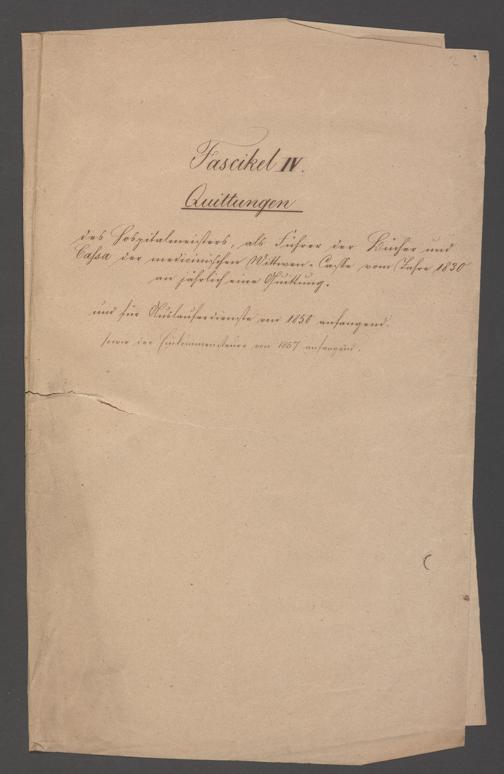 Fascikel IV.
Quittungen
des Hospitalmeisters, als Führer der Bücher und
Cassa der medicinischen Wittwen-Casse vom Jahre 1830
an jährlich eine Quittung.
und für Ausläuferdienste von 1858 anfangend.
sowie der Einkommensteuer von 1867 anfangend.